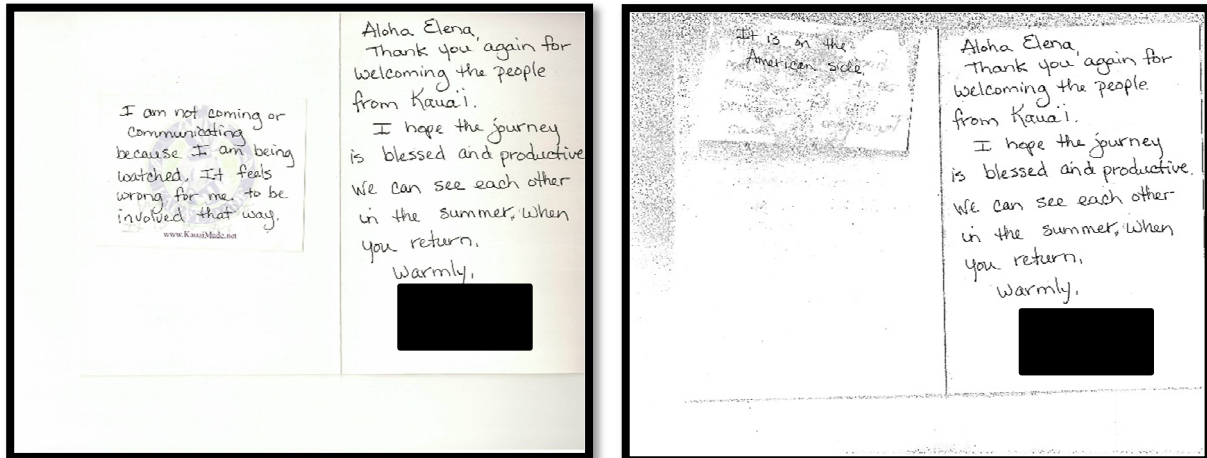 I am not coming or
communicating
because I am being
watched. It feels
wrong for me to be
involved that way.
www.KauaiMade.net
Aloha Elena,
Thank you again for
welcoming the people
from Kaua'i.
I hope the journey
is blessed and productive
We can see each other
in the summer, when
you return.
Warmly,
It is on the
American side.
Aloha Elena,
Thank you again for
welcoming the people
from Kaua'i.
I hope the journey
is blessed and productive.
We can see each other
in the summer, when
you return.
Warmly,